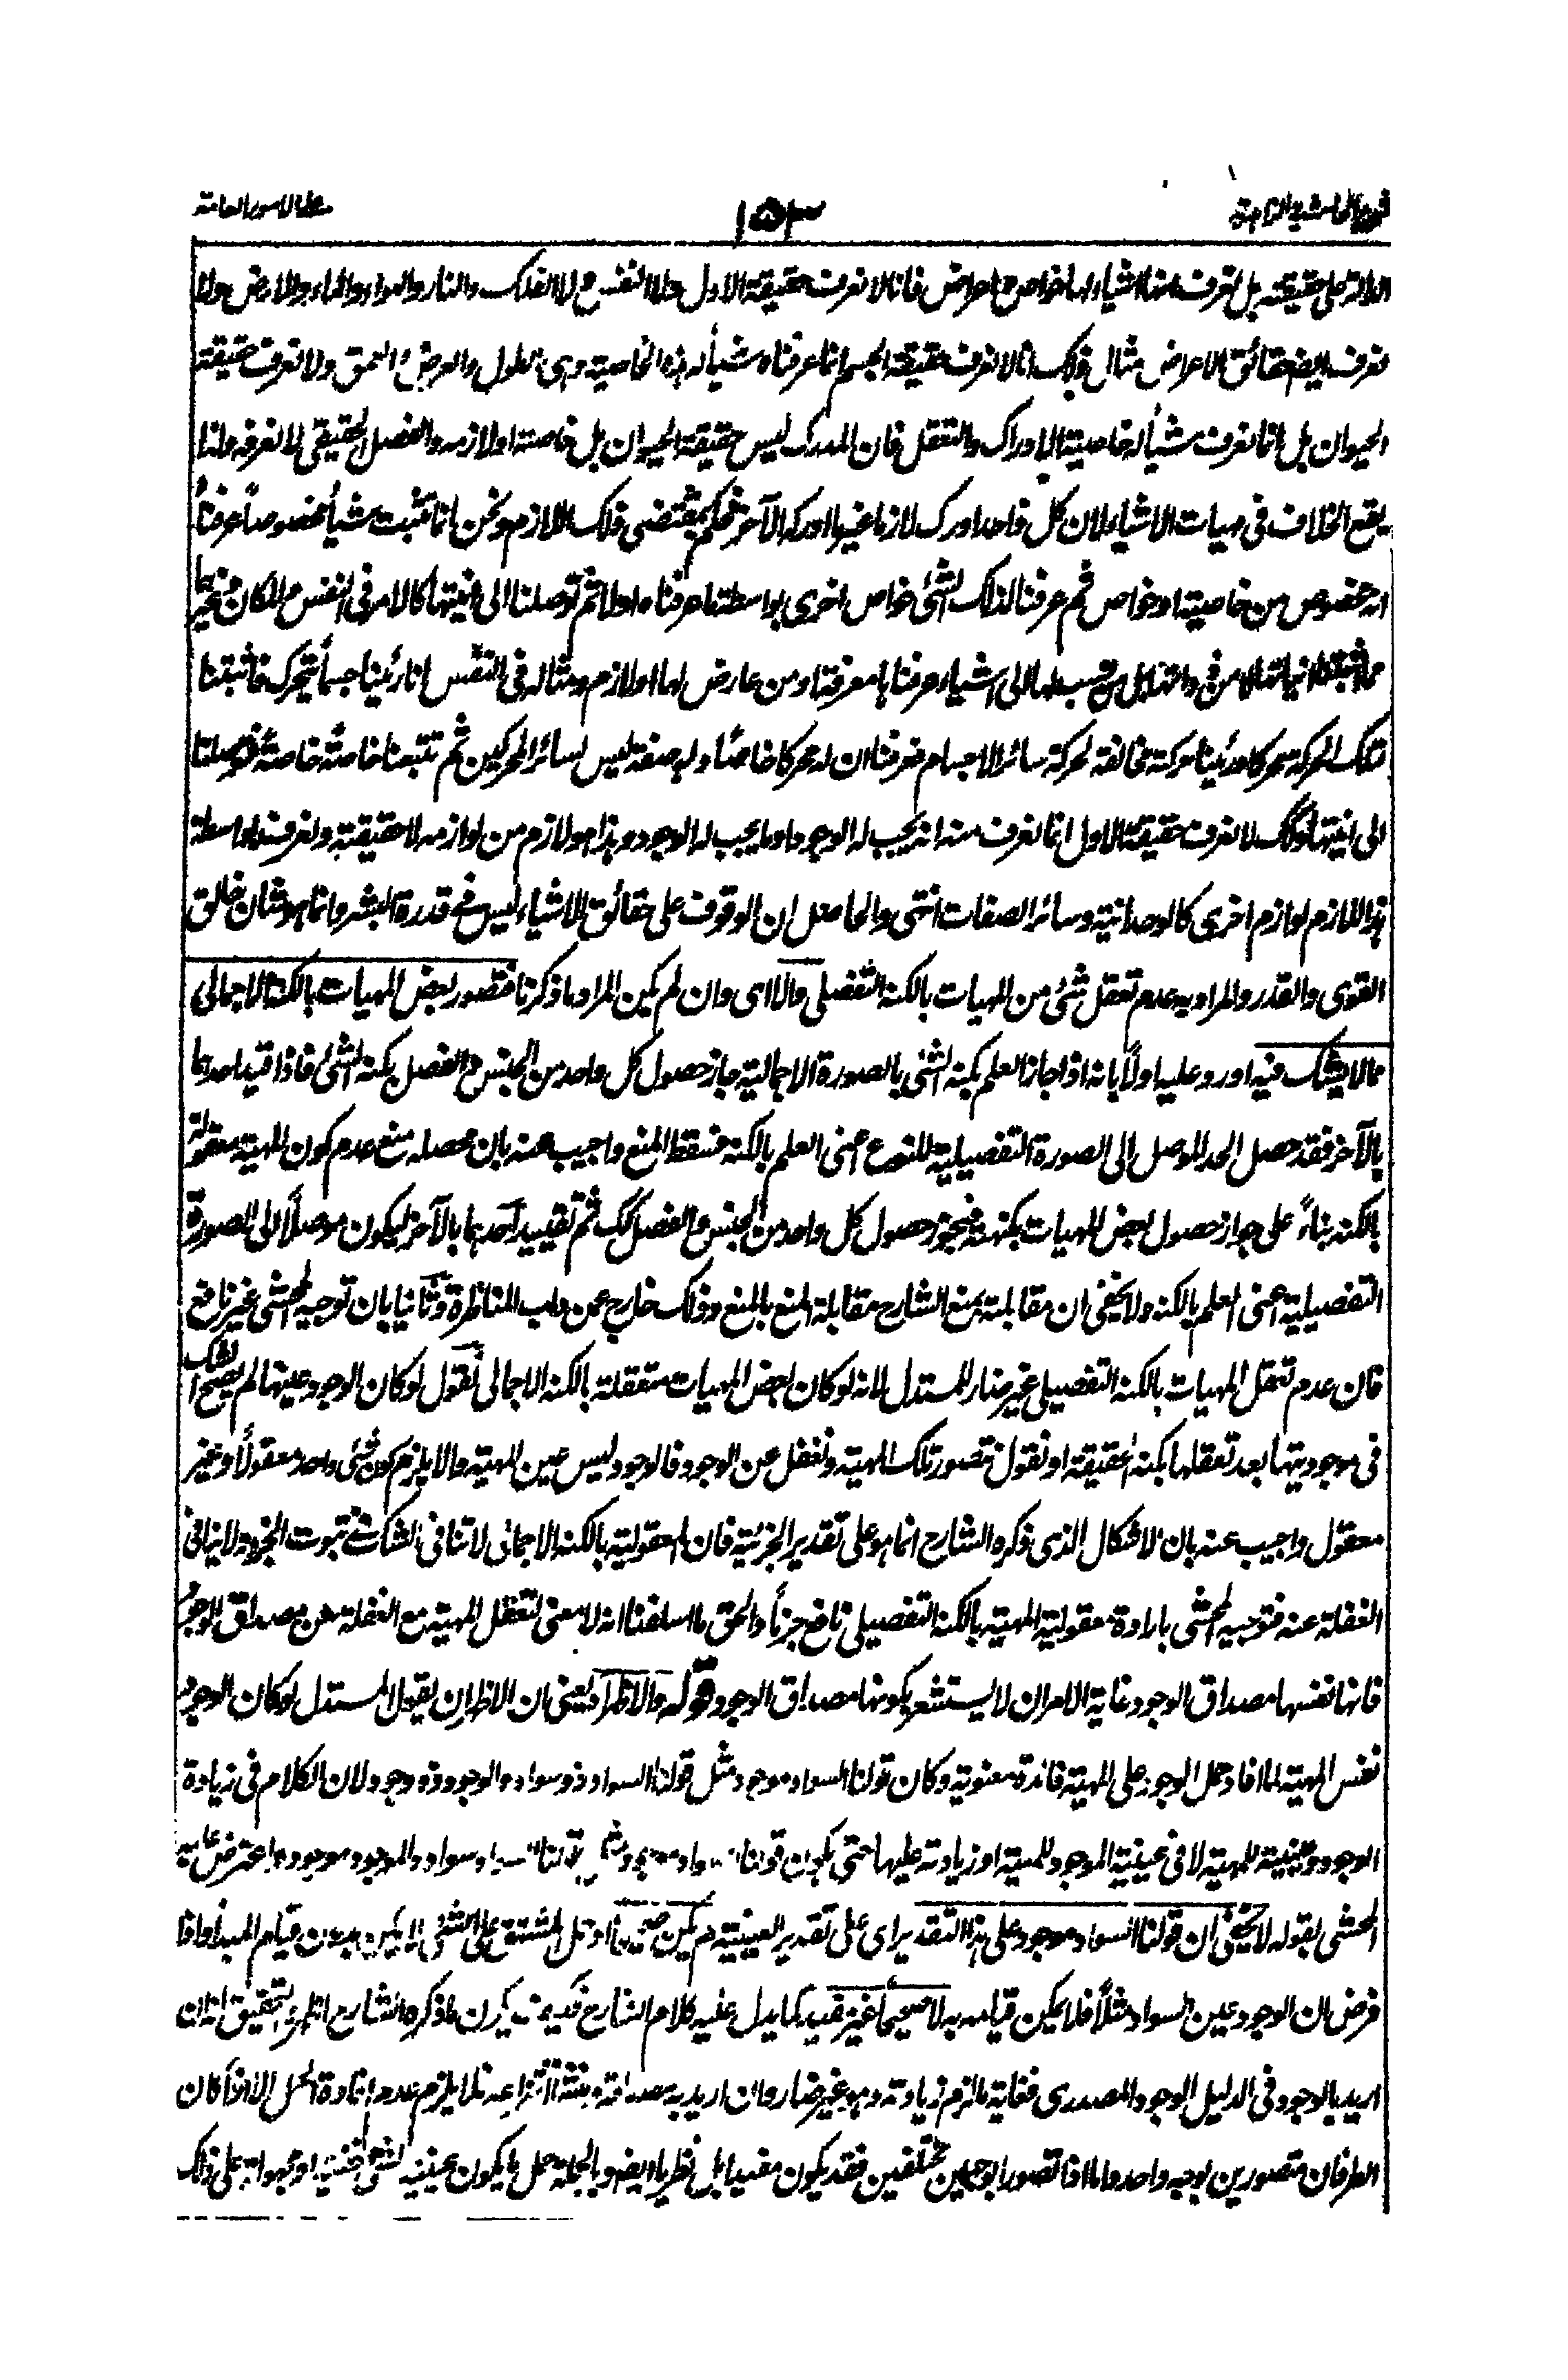 ١٥٣
الدالة على حقيقته بل نعرف انها اشياء لها خواص واعراض فانا لا نعرف حقيقة الاول ولا النفس ولا الفلك والنار والهواء والماء والارض ولا
نعرف ايضا حقائق الاعراض مثال ذلك انا لا نعرف حقيقة الجسم انما عرفناه شيأ له هذه الخاصية وهى الطول والعرض والعمق ولا نعرف حقيقة
الحيوان بل انما نعرف شيأ له خاصية الادراك والتعقل فان المدرك ليس حقيقة الحيوان بل خاصته او لازمه والفصل الحقيقى لا نعرفه ولذا
يقع الخلاف فى مهيات الاشياء لان كل واحد ادرك لازما غير ما ادركه الآخر فحكم بمقتضى ذلك اللازم ونحن انما نثبت شيأ مخصوصا عرفنا
انه مخصوص من خاصية او خواص ثم عرفنا لذلك الشئ خواص اخرى بواسطة ما عرفناه اولا ثم توصلنا الى انيتها كالامر فى النفس والمكان وغيرهما
مما اثبتنا انياتها لا من ذواتها بل من نسب لها الى اشياء عرفناها معرفة او من عارض لها او لازم ومثاله فى النفس انا رئينا جسما يتحرك فاثبتنا
لتلك الحركة محركا ورئينا حركة مخالفة لحركة سائر الاجسام فعرفنا ان له محركا خاصا وله صفة ليس لسائر المحركين ثم تتبعنا خاصة خاصة فتوصلنا
الى انيتها وكذلك لا نعرف حقيقة الاول انما نعرف منه انه يجب له الوجود او ما يجب له الوجود وهذا هو لازم من لوازمه لا حقيقته ونعرف بواسطة
هذا اللازم لوازم اخرى كالوحدانية وسائر الصفات انتهى والحاصل ان الوقوف على حقائق الاشياء ليس فى قدرة البشر وانما هو شان خالق
القوى والقدر والمراد به عدم تعقل شئ من المهيات بالكنه التفصيلى والا اى وان لم يكن المراد ما ذكرنا فتصور بعض المهيات بالكنه الاجمالى
مما لا يشك فيه اورد عليه اولا بانه اذا جاز العلم بكنه الشئ بالصورة الاجمالية جاز حصول كل واحد من الجنس والفصل بكنه الشئ فاذا قيد احدهما
بالآخر فقد حصل الحد الموصل الى الصورة التفصيلية للنوع اعنى العلم بالكنه فسقط المنع واجيب عنه بان محصله منع عدم كون المهية معقولة
بالكنه بناء على جواز حصول بعض المهيات بكنهه فيجوز حصول كل واحد من الجنس والفصل كذلك ثم تقييد احدهما بالآخر ليكون موصلا الى الصورة
التفصيلية اعنى العلم بالكنه ولا يخفى ان مقابلة منع الشارح مقابلة المنع بالمنع وذلك خارج عن داب المناظرة وثانيا بان توجيه المحشى غير نافع
فان عدم تعقل المهيات بالكنه التفصيلى غير ضار للمستدل لانه لو كان بعض المهيات متعقلة بالكنه الاجمالى نقول لو كان الوجود عينها لم يصح الشك
فى موجوديتها بعد تعقلها بكنه الحقيقة او نقول نتصور تلك المهية ونغفل عن الوجود فالوجود ليس عين المهية والا يلزم كون شئ واحد معقولا وغير
معقول واجيب عنه بان الاشكال الذى ذكره الشارح انما هو على تقدير الجزئية فان المعقولية بالكنه الاجمالى لا تنافى الشك فى ثبوت الجزء ولا ينافى
الغفلة عنه فتوجيه المحشى بارادة معقولية المهية بالكنه التفصيلى نافع جزأ والحق ما اسلفنا انه لا معنى لتعقل المهية مع الغفلة عن مصداق الوجود
فانها نفسها مصداق الوجود غاية الامر ان لا يستشعر بكونها مصداق الوجود قوله والاظهر اه يعنى ان الاظهر ان يقول المستدل لو كان الوجود
نفس المهية لما افاد حمل الوجود على المهية فائدة معنوية وكان قولنا السواد موجود مثل قولنا السواد ذو سواد والوجود ذو وجود لان الكلام فى زيادة
الوجود وعينيته للمهية لا فى عينية الموجود للمهية او زيادته عليها حتى يكون قولنا السواد موجود مثل قولنا السواد سواد والموجود موجود واعترض عليه
المحشى بقوله لا يخفى ان قولنا السواد موجود على هذا التقدير اى على تقدير العينية لم يكن صحيحا اذ حمل المشتق على الشئ لا يكون بدون قيام المبدأ واذا
فرض ان الوجود عين السواد مثلا فلا يمكن قيامه به لا صحيحا غير مفيد كما يدل عليه كلام الشارح ما ذكره الشارح التحقيق انه ان
اريد بالوجود فى الدليل الوجود المصدرى فغاية ما لزم زيادته وهو غير ضار وان اريد به مصداقه ومنشأ انتزاعه فلا يلزم عدم افادة الحمل الا اذا كان
الطرفان متصورين بوجه واحد واما اذا تصورا بوجهين مختلفين فقد يكون مفيدا بل نظريا ايضا وبالجملة حمل ما يكون عينية الشئ على ذلك